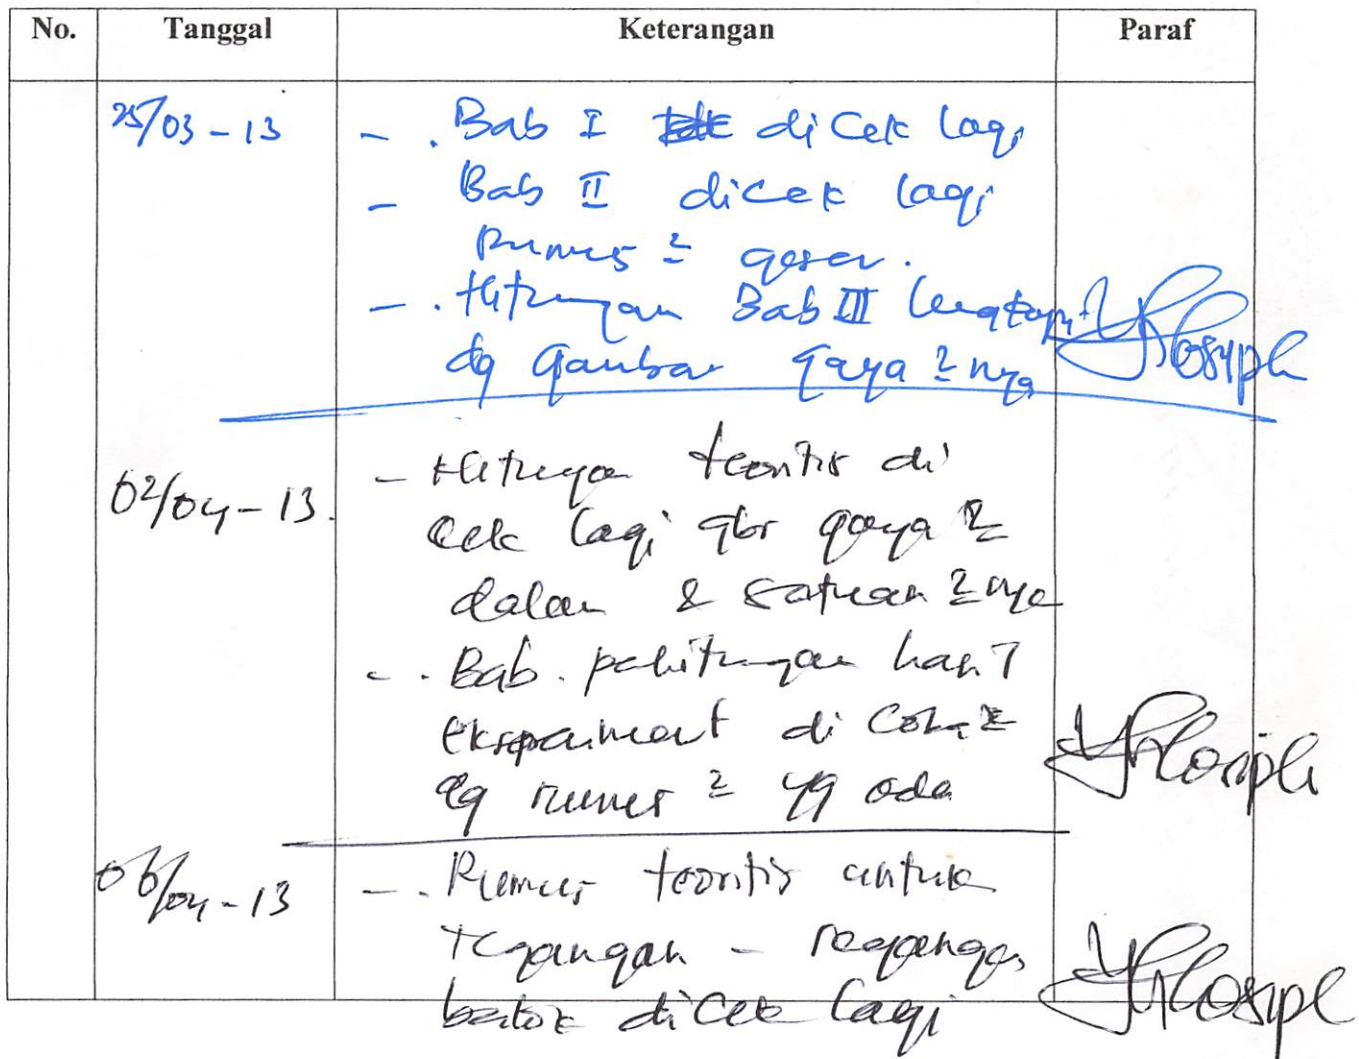 No. Tanggal Keterangan Paraf
25/03 - 13 - . Bab I di Cek lagi
- Bab II dicek lagi
Rumus ² geser.
- . Hitungan Bab III lengkapi
dg gambar gaya ² nya
02/04 - 13. - Hitungan teoritis di
cek lagi gbr gaya ²
dalam & satuan ² nya
- . Bab. perhitungan hasil
eksperiment di coba ²
dg rumus ² yg ada
06/04 - 13 - . Rumus teoritis untuk
tegangan - regangan
beton di Cek lagi